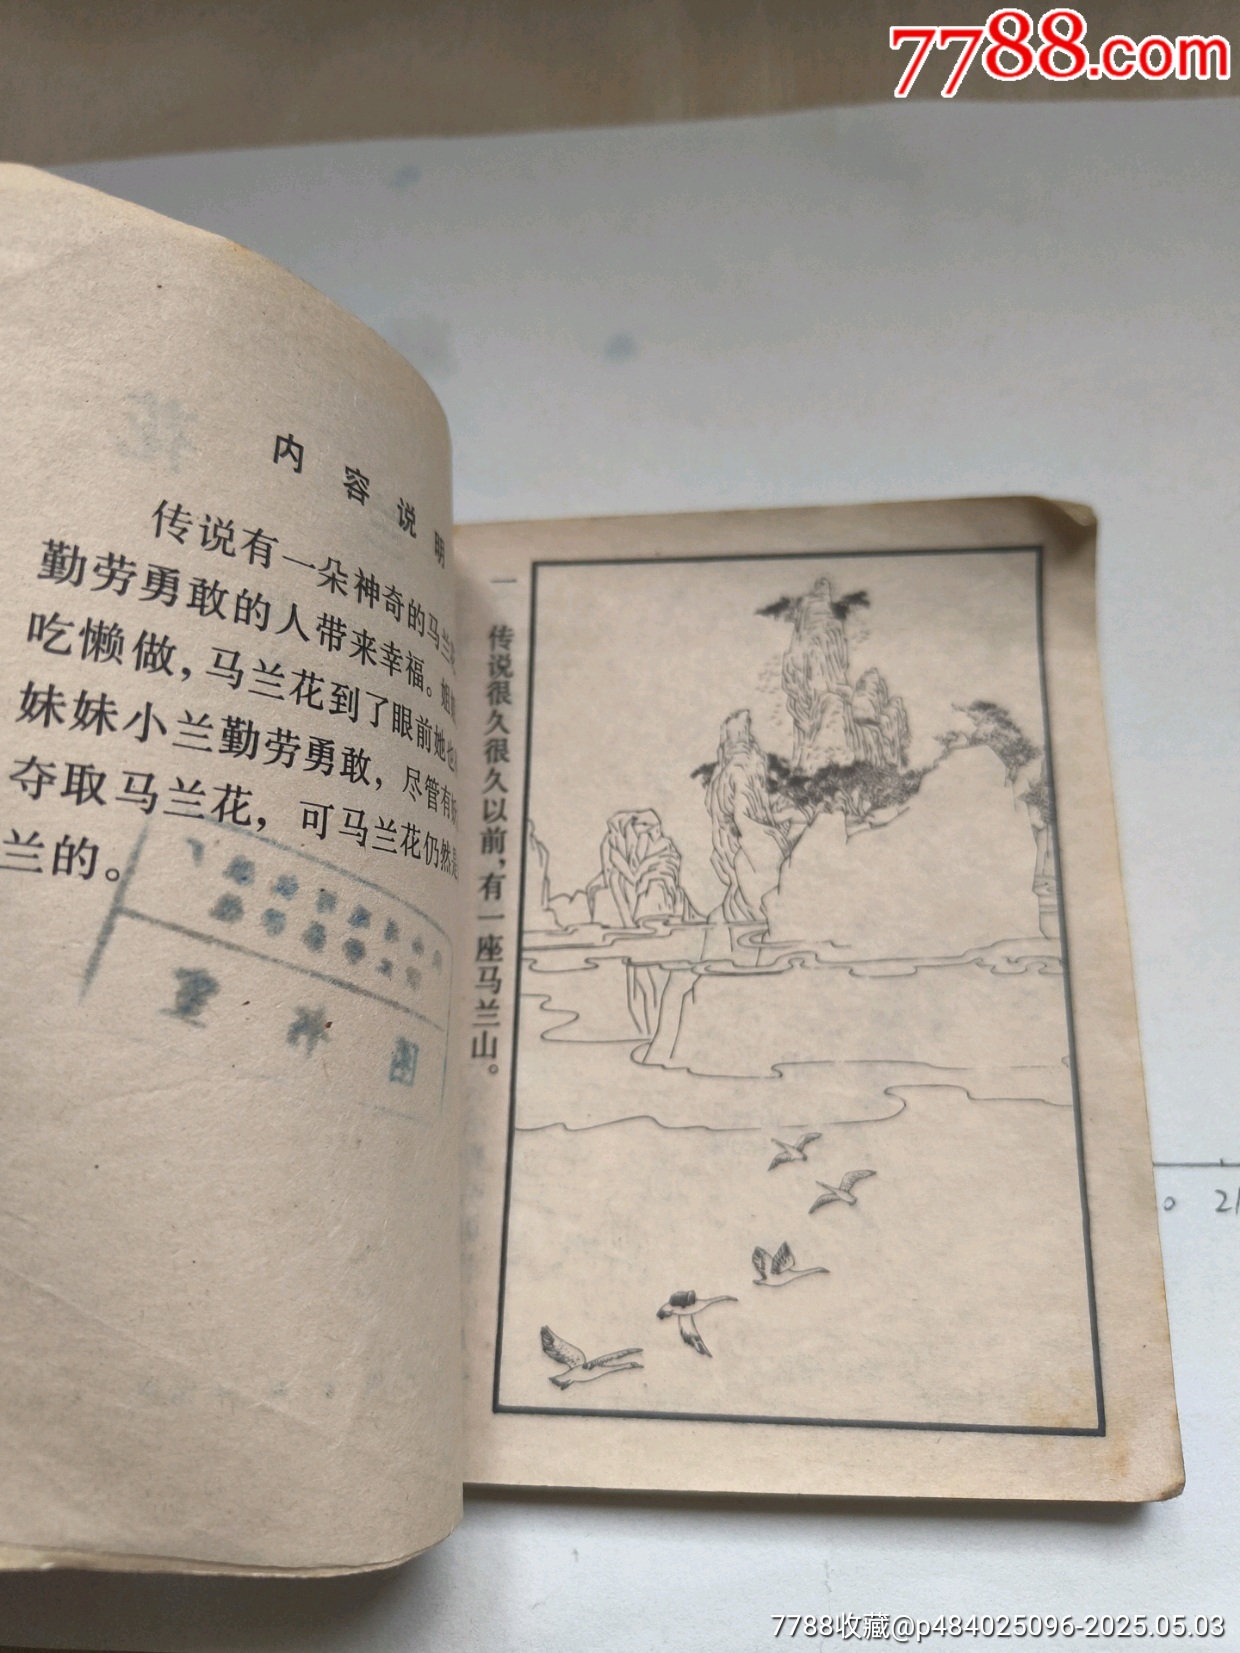 7788.com
内容说明
传说有一朵神奇的马兰
勤劳勇敢的人带来幸福。姐
吃懒做，马兰花到了眼前她也
妹妹小兰勤劳勇敢，尽管有
夺取马兰花，可马兰花仍然是
兰的。
图书室
一
传说很久很久以前，有一座马兰山。
21
7788收藏@p484025096-2025.05.03